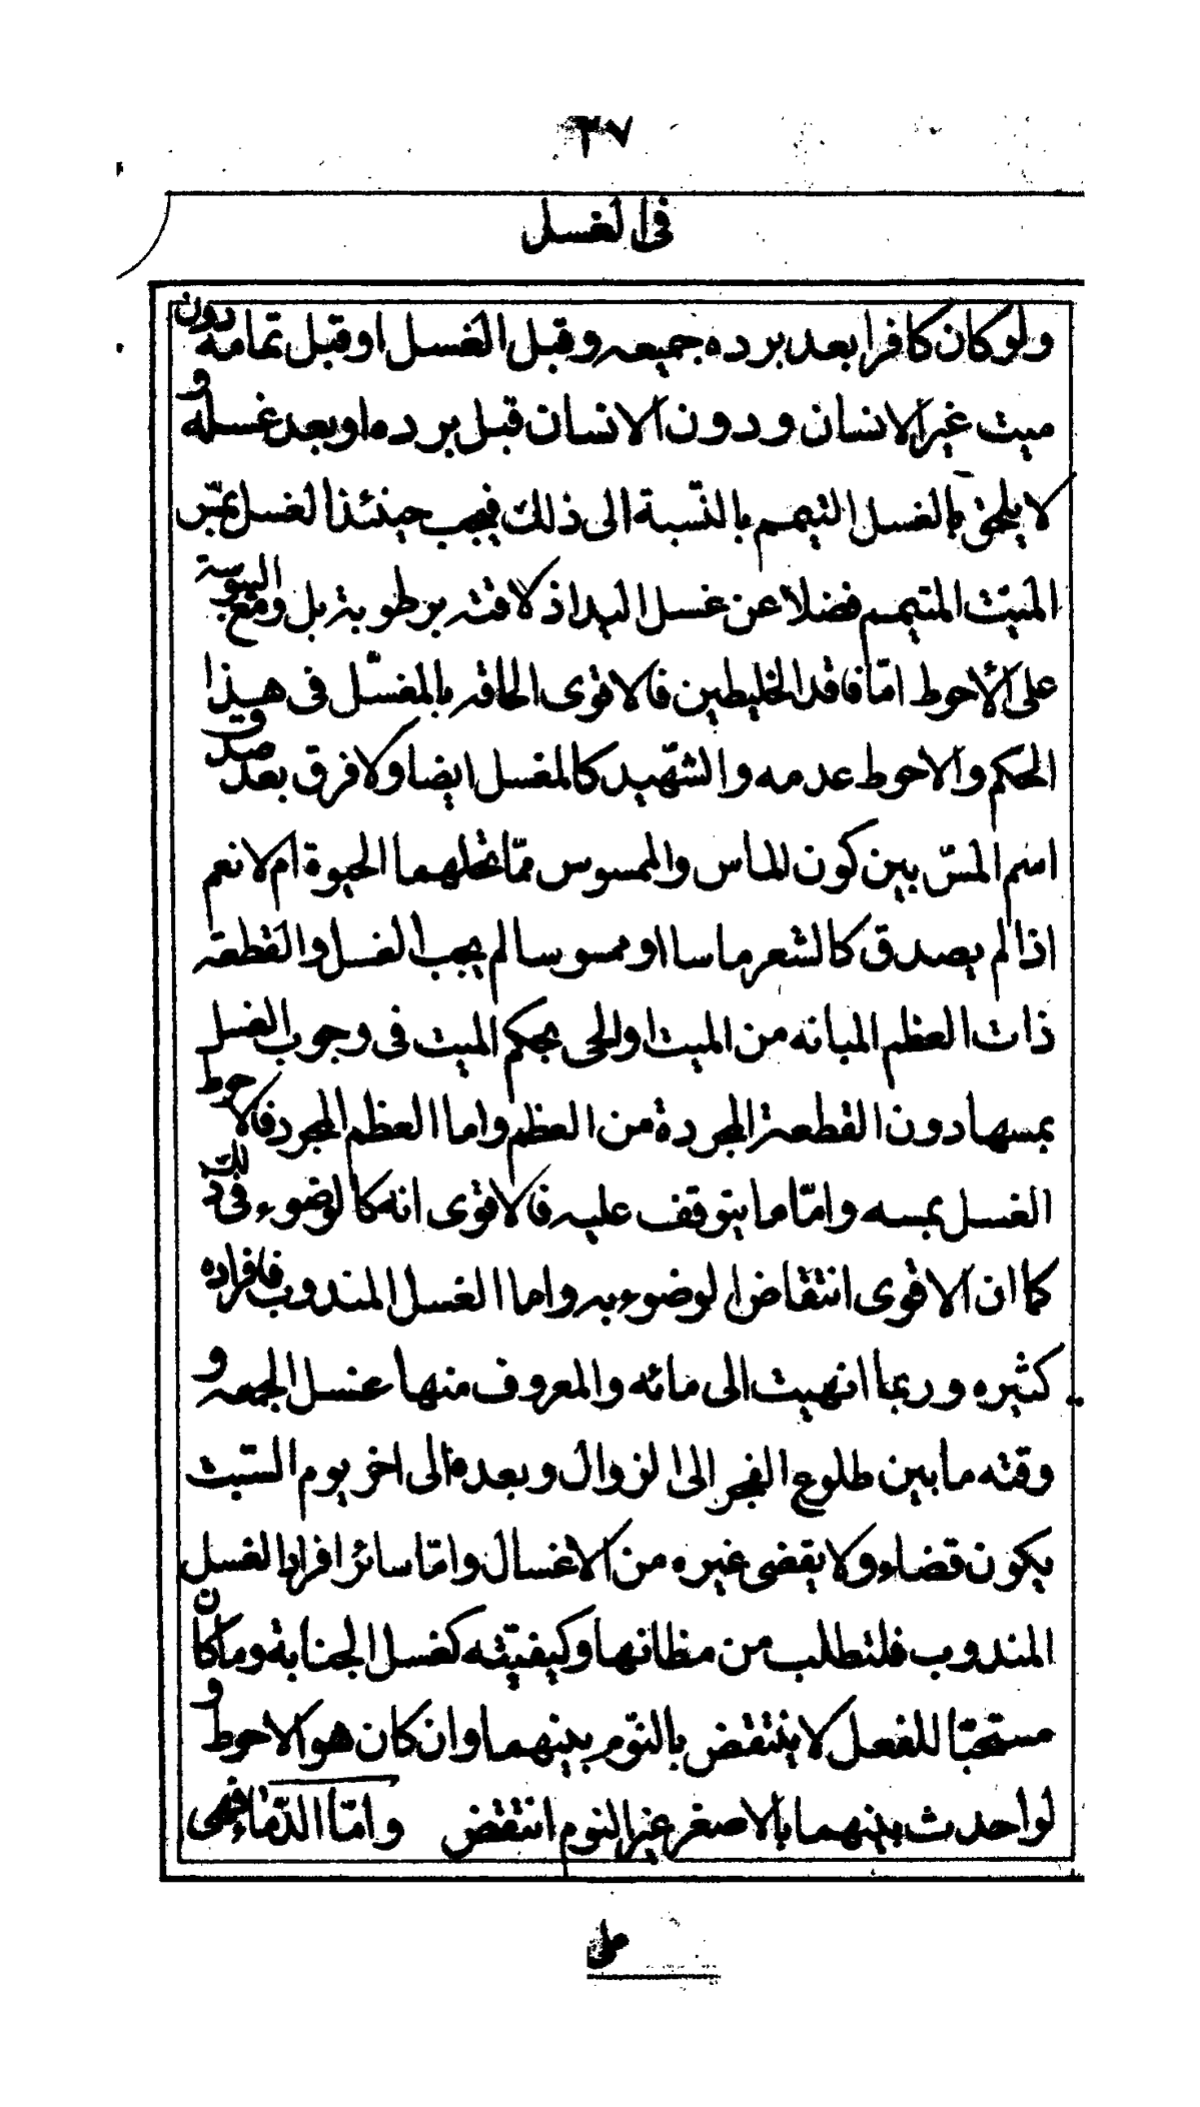 ٣٧
في الغسل
ولو كان كافرا بعد برده جميعه وقبل الغسل او قبل تمامه دون
ميت غير الانسان ودون الانسان قبل برده او بعد غسله و
لا يلحق بالغسل التيمم بالنّسبة الى ذلك فيجب حينئذ الغسل بمسّ
الميّت المتيمم فضلا عن غسل اليد اذ لاقته برطوبة بل ومع اليبوسة
على الأحوط امّا فاقد الخليطين فالاقوى الحاقه بالمغسّل في هذا
الحكم والاحوط عدمه والشّهيد كالمغسل ايضا ولا فرق بعد صدق
اسم المسّ بين كون الماس والممسوس ممّا تحلهما الحيوة ام لا نعم
اذا لم يصدق كالشعر ماسا او ممسوسا لم يجب الغسل والقطعة
ذات العظم المبانه من الميت او الحى بحكم الميت في وجوب الغسل
بمسها دون القطعة المجردة من العظم واما العظم المجرد فالاحوط
الغسل بمسه وامّا ما يتوقف عليه فالاقوى انه كالوضوء في ذلك
كما ان الاقوى انتقاض الوضوء به واما الغسل المندوب فافراده
كثيره وربما انهيت الى مائه والمعروف منها غسل الجمعه و
وقته ما بين طلوع الفجر الى الزوال وبعده الى اخر يوم السّبت
يكون قضاء ولا يقضى غيره من الاغسال وامّا سائر افراد الغسل
المندوب فلتطلب من مظانها وكيفيّته كغسل الجنابة وما كان
مستحبّا للفعل لا ينتقض بالنّوم بينهما وان كان هو الاحوط و
لو احدث بينهما بالاصغر غير النوم انتقض وامّا الدّماء فهى